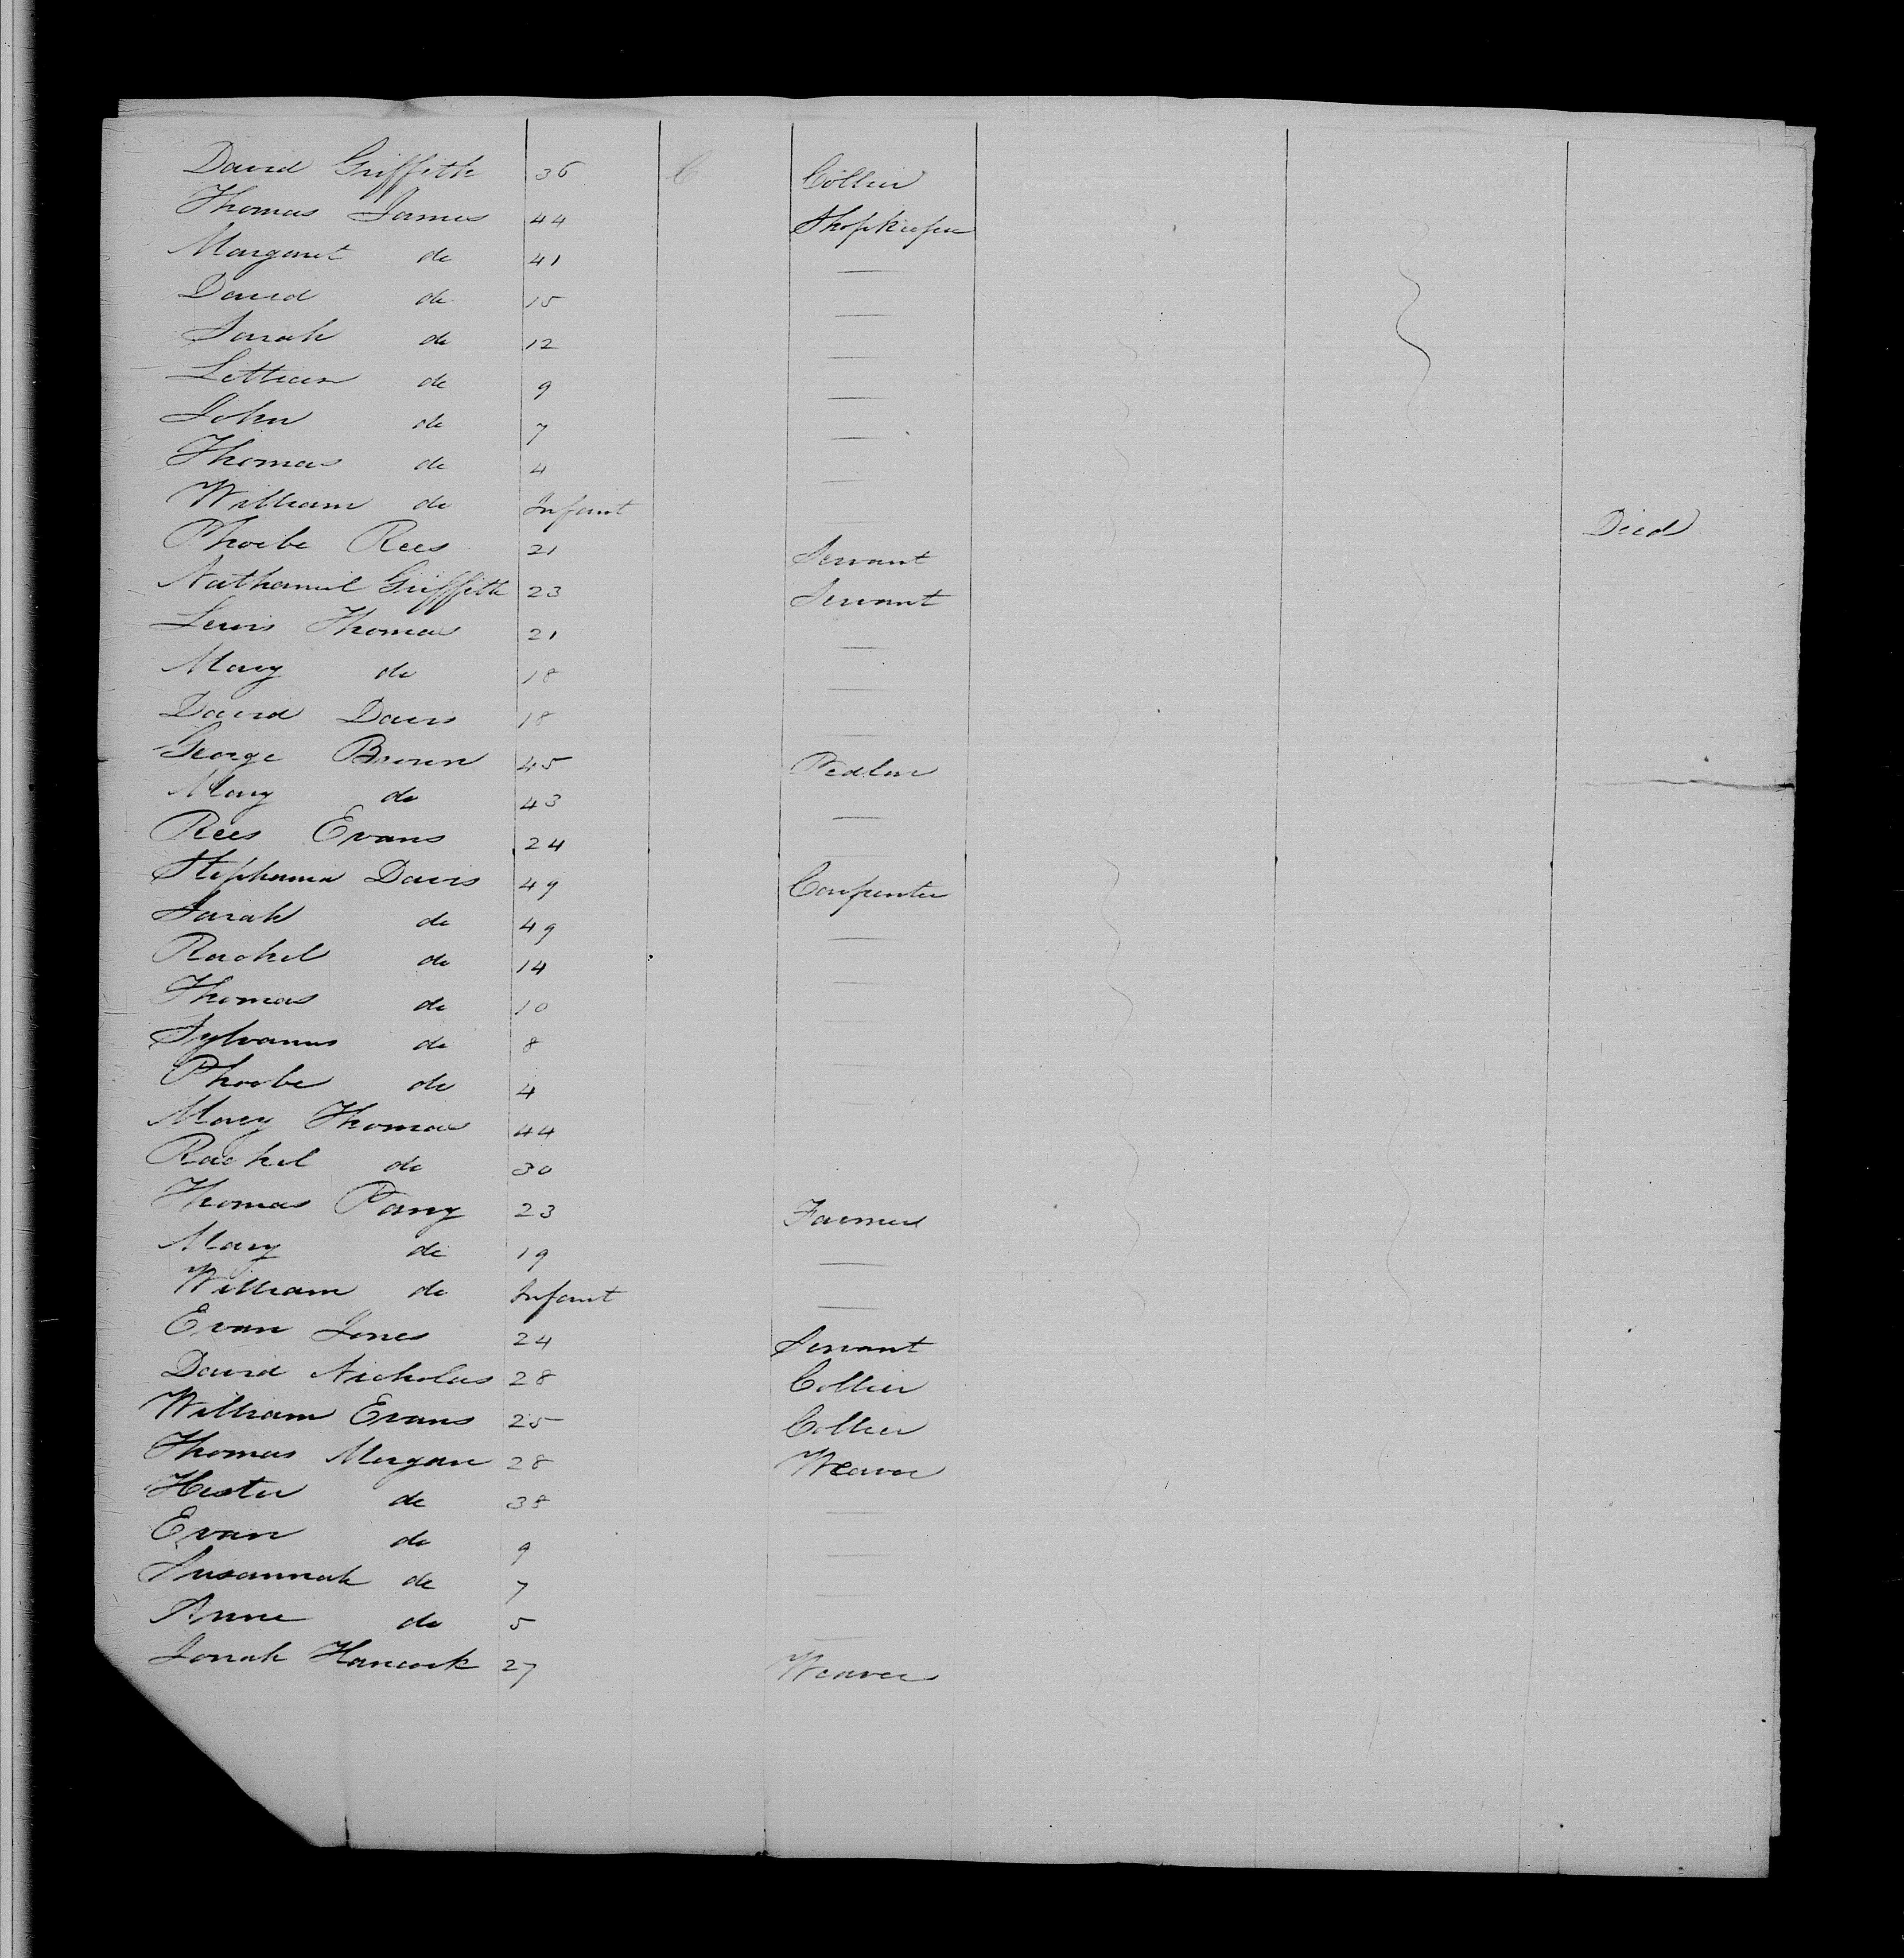 David Griffith 36 C Collier
Thomas James 44 Shopkeeper
Margaret do 41 —
David do 15 —
Sarah do 12 —
Lettian do 9 —
John do 7 —
Thomas do 4 —
William do Infant — Died
Phoebe Rees 21 Servant
Nathaniel Griffith 23 Servant
Lewis Thomas 21 —
Mary do 18 —
David Davis 18 —
George Brown 45 Pedlar
Mary do 43 —
Rees Evans 24 —
Stephania Davis 49 Carpenter
Sarah do 49 —
Rachel do 14 —
Thomas do 10 —
Sylvanus do 8 —
Phoebe do 4 —
Mary Thomas 44
Rachel do 30
Thomas Parry 23 Farmer
Mary do 19 —
William do Infant —
Evan Jones 24 Servant
David Nicholas 28 Collier
William Evans 25 Collier
Thomas Morgan 28 Weaver
Hester do 38 —
Evan do 9 —
Susannah do 7 —
Anne do 5 —
Jonah Hancock 27 Weaver